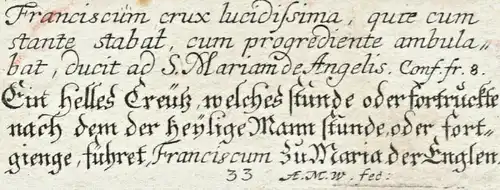 Franciscum crux lucidiſsima, quæ cum
stante stabat, cum progrediente ambula„
bat, ducit ad S. Mariam de Angelis. Conf. fr. 8.
Ein helles Creütz, welches stunde oder fortruckte
nach dem der heÿlige Mann stunde, oder, fort-
gienge, fuhret, Franciscum zu Maria der Englen.
33 A. M. W. fec: